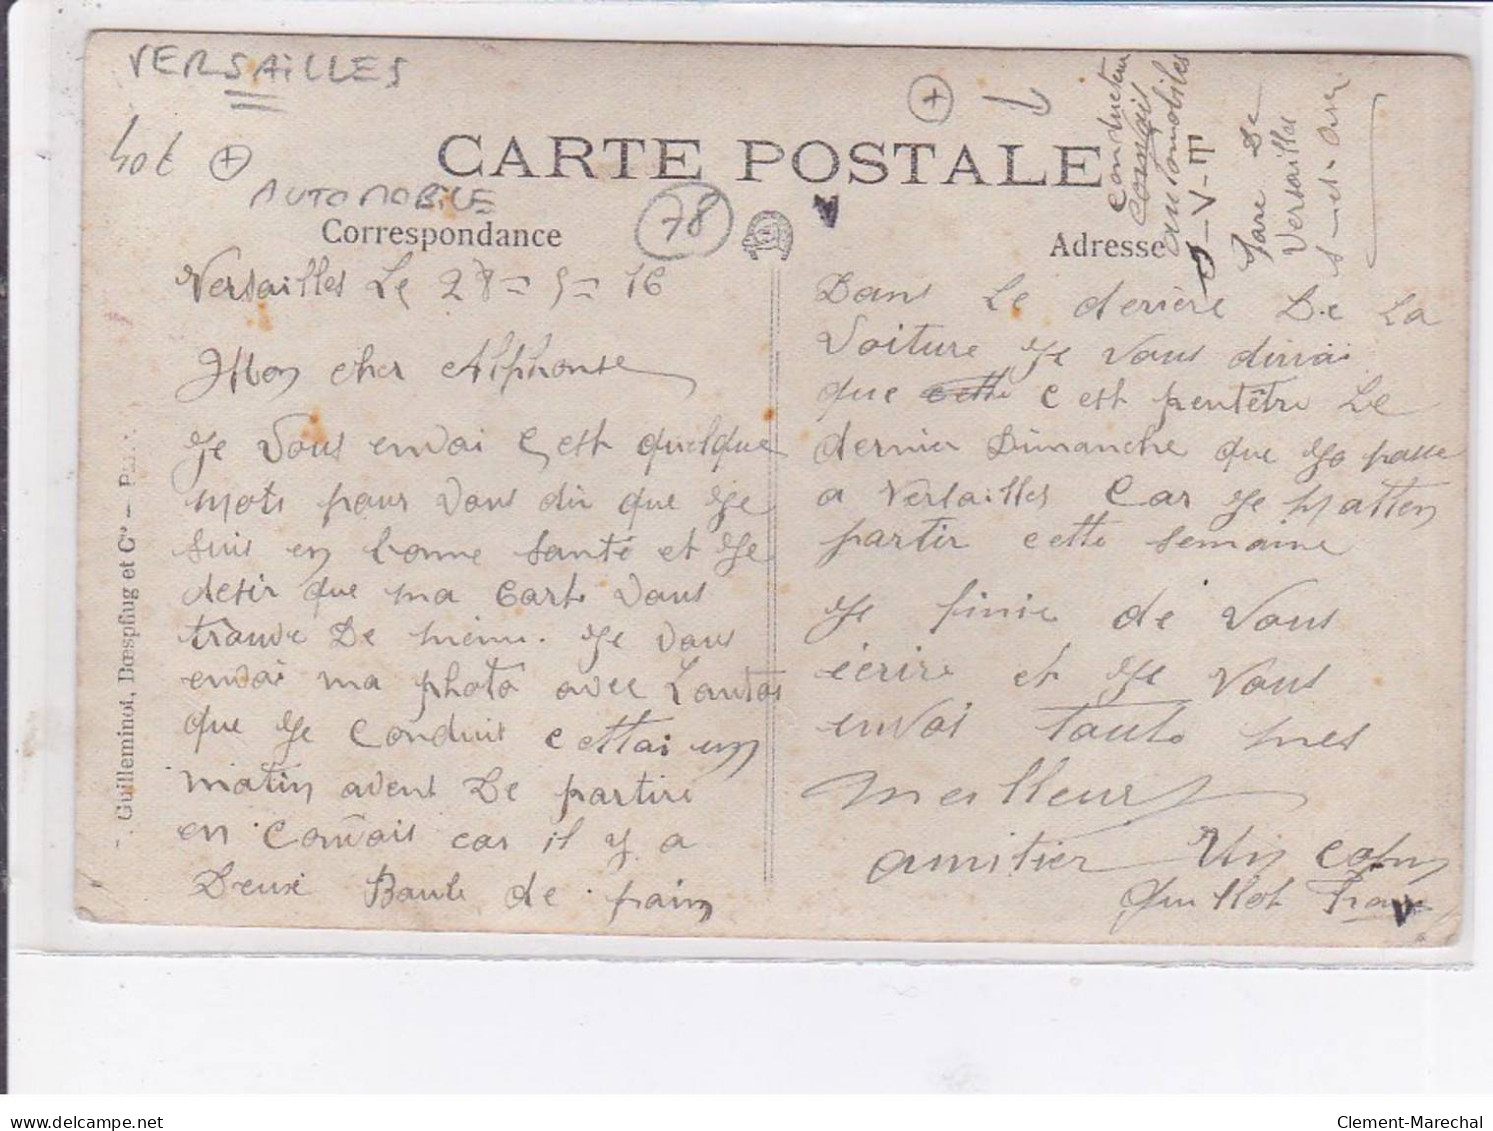 VERSAILLES
40€
AUTOMOBILE
78
CARTE POSTALE
Correspondance
Adresse
Conducteur
Convais
automobiles
Gare De
Versailles
Guilleminot, Bœspflug et Cie — Paris
Versailles Le 28 = 5 = 16
Mon cher Alphonse
Je vous envoi c est quelque
mots pour vous dir que Je
suis en bonne santé et Je
desir que ma carte vous
trouve De même. Je vous
envoi ma photo avec Lautos
que Je conduit cettai un
matin avent De partire
en convais car il y a
Deux Boule de pain
Dans Le deriere De La
Voiture Je vous dirai
que cette c est peutêtre Le
dernier Dimanche que Je passe
a Versailles Car Je M atten
partir cette semaine
Je finie de vous
écrire et Je vous
envoi toute mes
meilleurs
amitier Un copin
Guillot
Clement-Marechal
www.delcampe.net